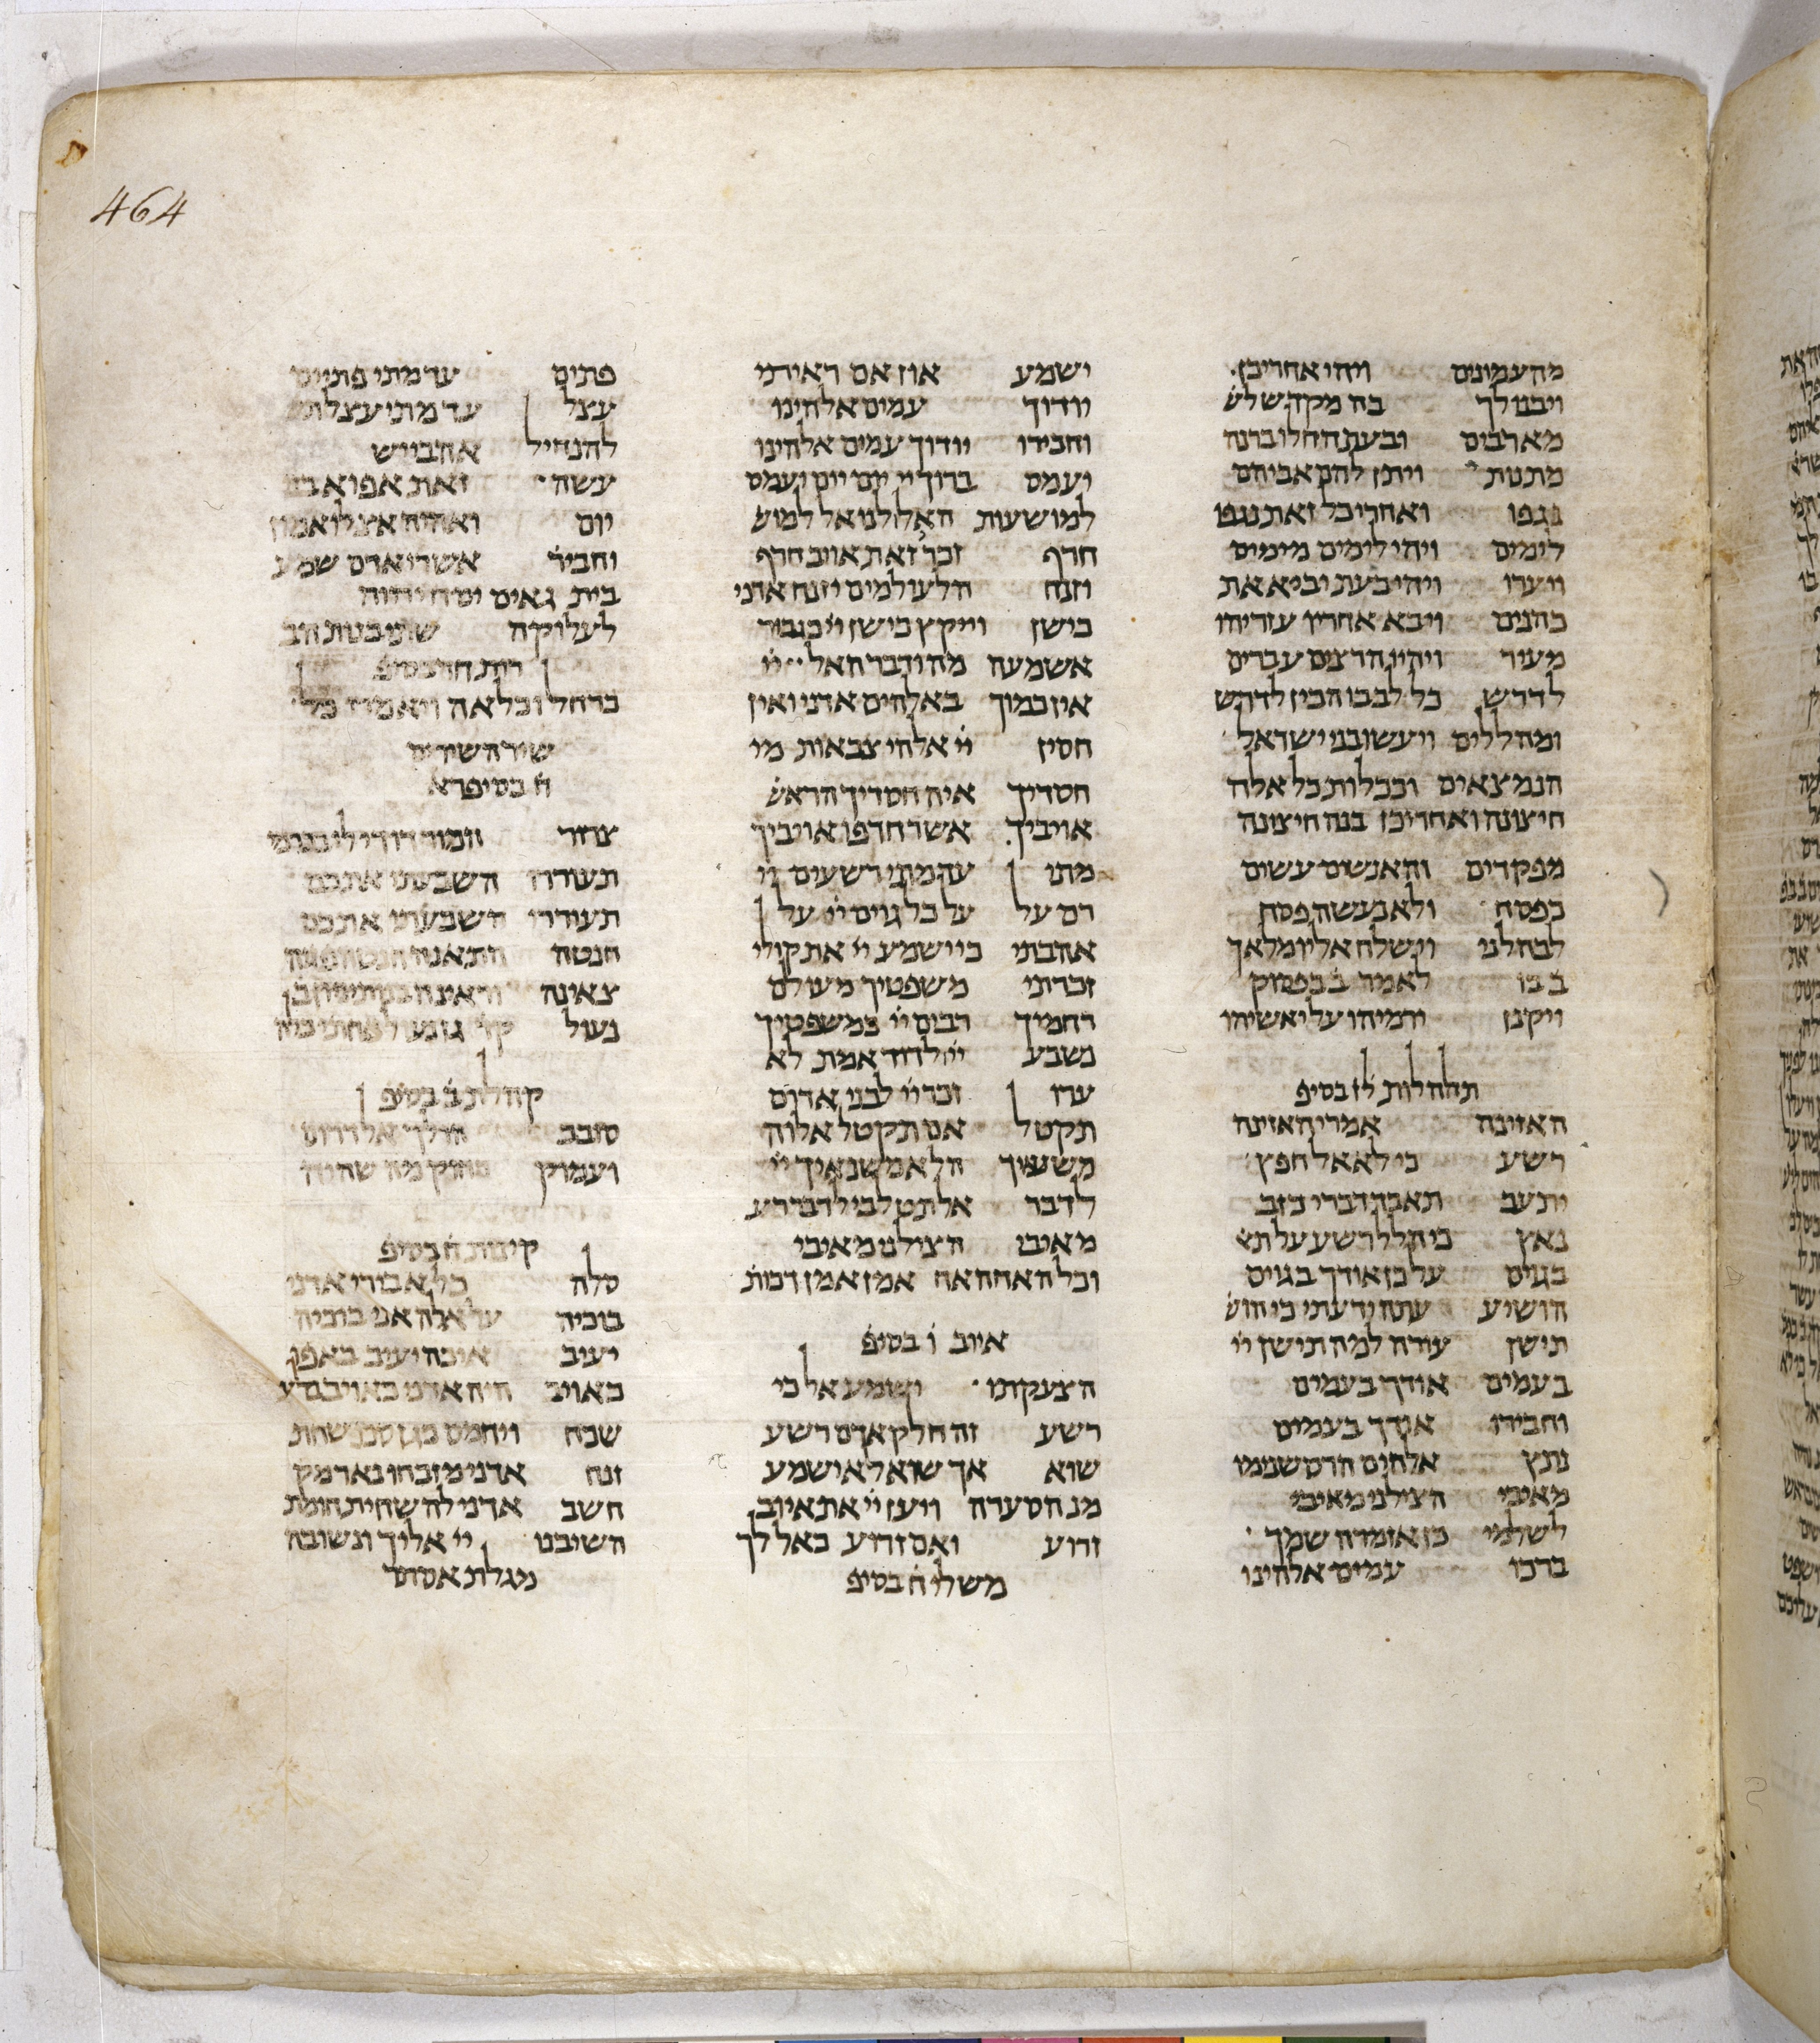 464
מהעמונים ויהי אחריכן
ויבנו לך בה מקדש לש
מארבים ובעת החלו ברנה
מתנות ויתן להם אביהם
נגפו ואחרי כל זאת נגפו
לימים ויהי לימים מימים
ויערו ויהי בעת יביא את
כהנים ויבא אחריו עזריהו
מעיר ויהיו הרצים עברים
לדרש כל לבבו הכין לדרש
ומהללים ויעשו בני ישראל
הנמצאים וככלות כל אלה
חיצונה ואחרי כן בנה חיצונה
מפקדים והאנשים עשים
כפסח ולא נעשה פסח
לבהלני וישלח אליו מלאך
ב בו לאמר ב בפסוק
ויקונן ירמיהו על יאשיהו
תהלות לז בסיפ
האזינה אמרי האזינה
רשע כי לא אל חפץ
יתעב תאבד דברי כזב
נאץ כי הלל רשע על תא
בגוים על כן אודך בגוים
הושיע עתה ידעתי כי הוש
תישן עורה למה תישן יי
בעמים אודך בעמים
והכירו אודך בעמים
נתץ אלהים הרס שנימו
מאיבי הצילני מאיבי
לשלמי כן אזמרה שמך
ברכו עמים אלהינו
ישמע און אם ראיתי
יודוך עמים אלהינו
והכירו יודוך עמים אלהינו
יעמס ברוך יי יום יום יעמס
למושעות האל לנו אל למוש
חרף זכר זאת אויב חרף
יזנח הלעולמים יזנח אדני
כישן וייקץ כישן יי כגבור
אשמעה מה ידבר האל יי
אין כמוך באלהים אדני ואין
חסין יי אלהי צבאות מי
חסדיך איה חסדיך הראש
אויביך אשר חרפו אויביך
מתי עד מתי רשעים יי
רם על על כל גוים יי על
אהבתי כי ישמע יי את קולי
זכרתי משפטיך מעולם
רחמיך רבים יי כמשפטיך
נשבע יי לדוד אמת לא
ערו זכר יי לבני אדום
תקטל אם תקטל אלוה
משנאיך הלא משנאיך יי
לדבר אל תט לבי לדבר רע
מאיבי הצילני מאיבי
וכל האחה אח אמן אמן דכות
איוב ו בסיפ
הצעקתו ישמע אל כי
רשע זה חלק אדם רשע
שוא אך שוא לא ישמע
מנ הסערה ויען יי את איוב
זרוע ואם זרוע כאל לך
משלי ח בסיפ
פתים עד מתי פתים
עצל עד מתי עצל
להנחיל אהביי יש
עשה זאת אפוא בני
יום ואהיה אצלו אמון
וחביר אשרי אדם שמע
בית גאים יסח יהוה
לעלוקה שתי בנות הב
רות חד בסיפ
כרחל וכלאה ויאמרו כל
שיר השירים
ח בסיפרא
צרור המור דודי לי
תעוררו השבעתי אתכם
תעוררו השבעתי אתכם
חנטה התאנה חנטה
צאינה וראינה בנות ציון
נעול גן נעול אחתי כלה
קהלת ב בסיפ
סובב הולך אל דרום
ועמוק רחוק מה שהיה
קינות ח בסיפ
סלה כל אבירי אדני
בוכיה על אלה אני בוכיה
יעיב איכה יעיב באפו
כאויב היה אדני כאויב בלע
שכח ויחמס כגן סכו שחת
זנח אדני מזבחו נאר מק
חשב אדני להשחית חומת
השיבנו יי אליך ונשובה
מגלת אסתר